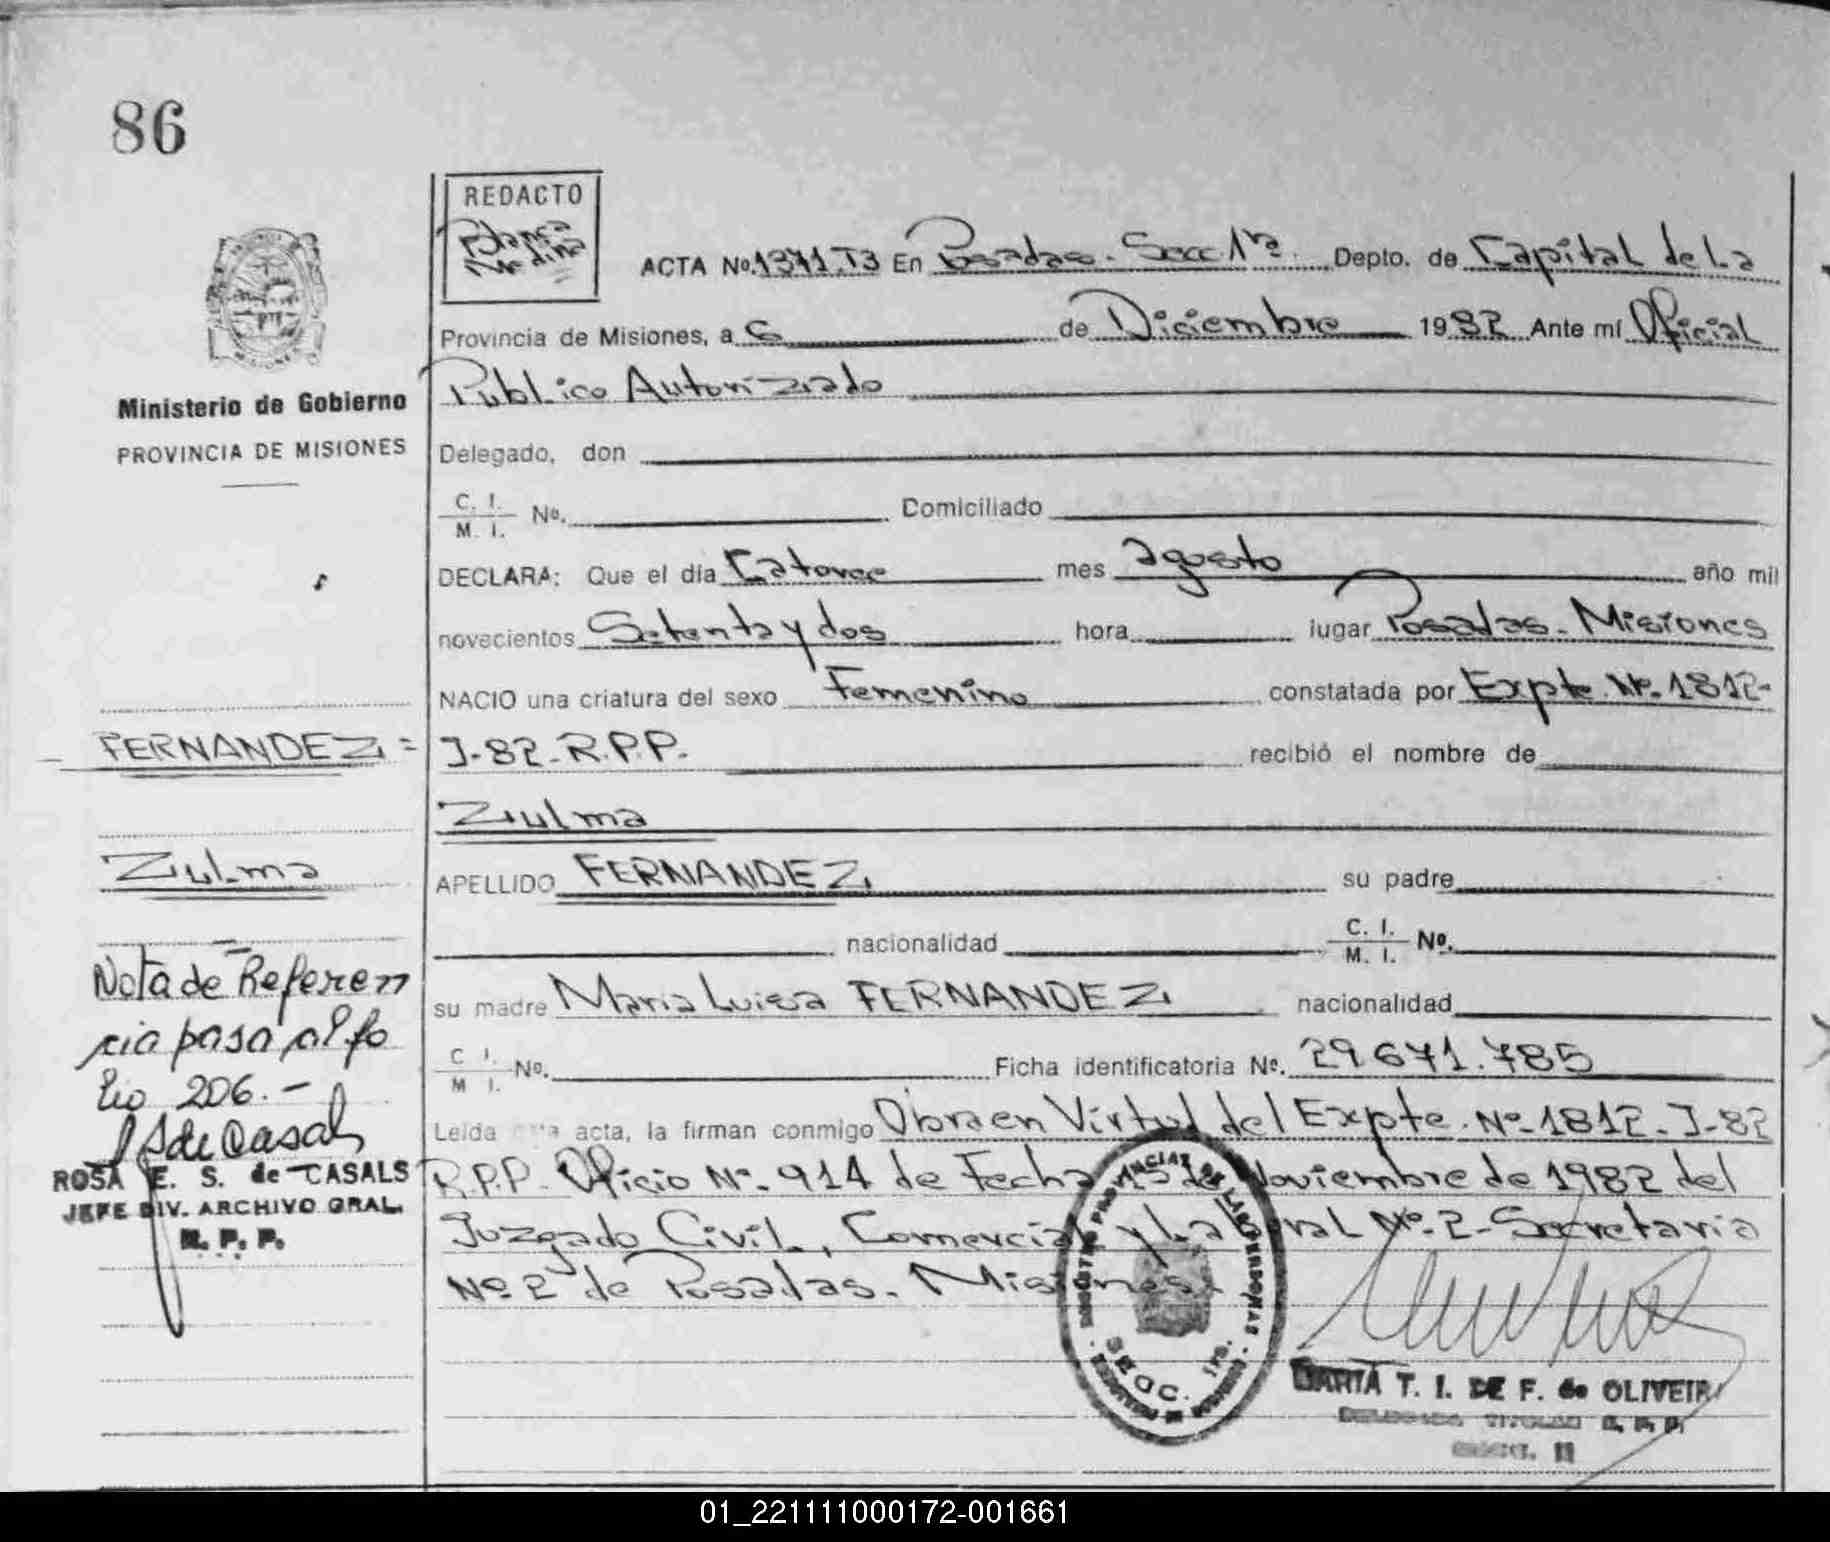 86
REDACTO
Blanca
Medina
ACTA No. 1371.T3 En Posadas. Secc 1ra. Depto. de Capital de La
Provincia de Misiones, a 6 de Diciembre 1982 Ante mí Oficial
Publico Autorizado
Ministerio de Gobierno
PROVINCIA DE MISIONES
Delegado, don
C. I.
M. I. No. Domiciliado
DECLARA: Que el día Catorce mes agosto año mil
novecientos Setenta y dos hora lugar Posadas. Misiones
NACIO una criatura del sexo Femenino constatada por Expte. Nº. 1812-
FERNANDEZ =
J-82-R.P.P. recibió el nombre de
Zulma
Zulma
APELLIDO FERNANDEZ su padre
nacionalidad C. I.
M. I. No.
su madre Maria Luisa FERNANDEZ nacionalidad
C I.
M I. No. Ficha identificatoria No. 29671.785
Leída acta, la firman conmigo Obra en Virtud del Expte. Nº-1812-J-82
R.P.P. Oficio Nº. 914 de Fecha 15 de Noviembre de 1982 del
Juzgado Civil, Comercial y Laboral Nº-2-Secretaria
Nº 2 de Posadas. Misiones.
Nota de Referen
cia pasa al fo
lio 206.-
ROSA E. S. de CASALS
JEFE DIV. ARCHIVO GRAL.
R. P. P.
SECC. 1ra.
MARTA T. I. DE F. de OLIVEIRA
DELEGADA TITULAR R. P. P.
01_221111000172-001661